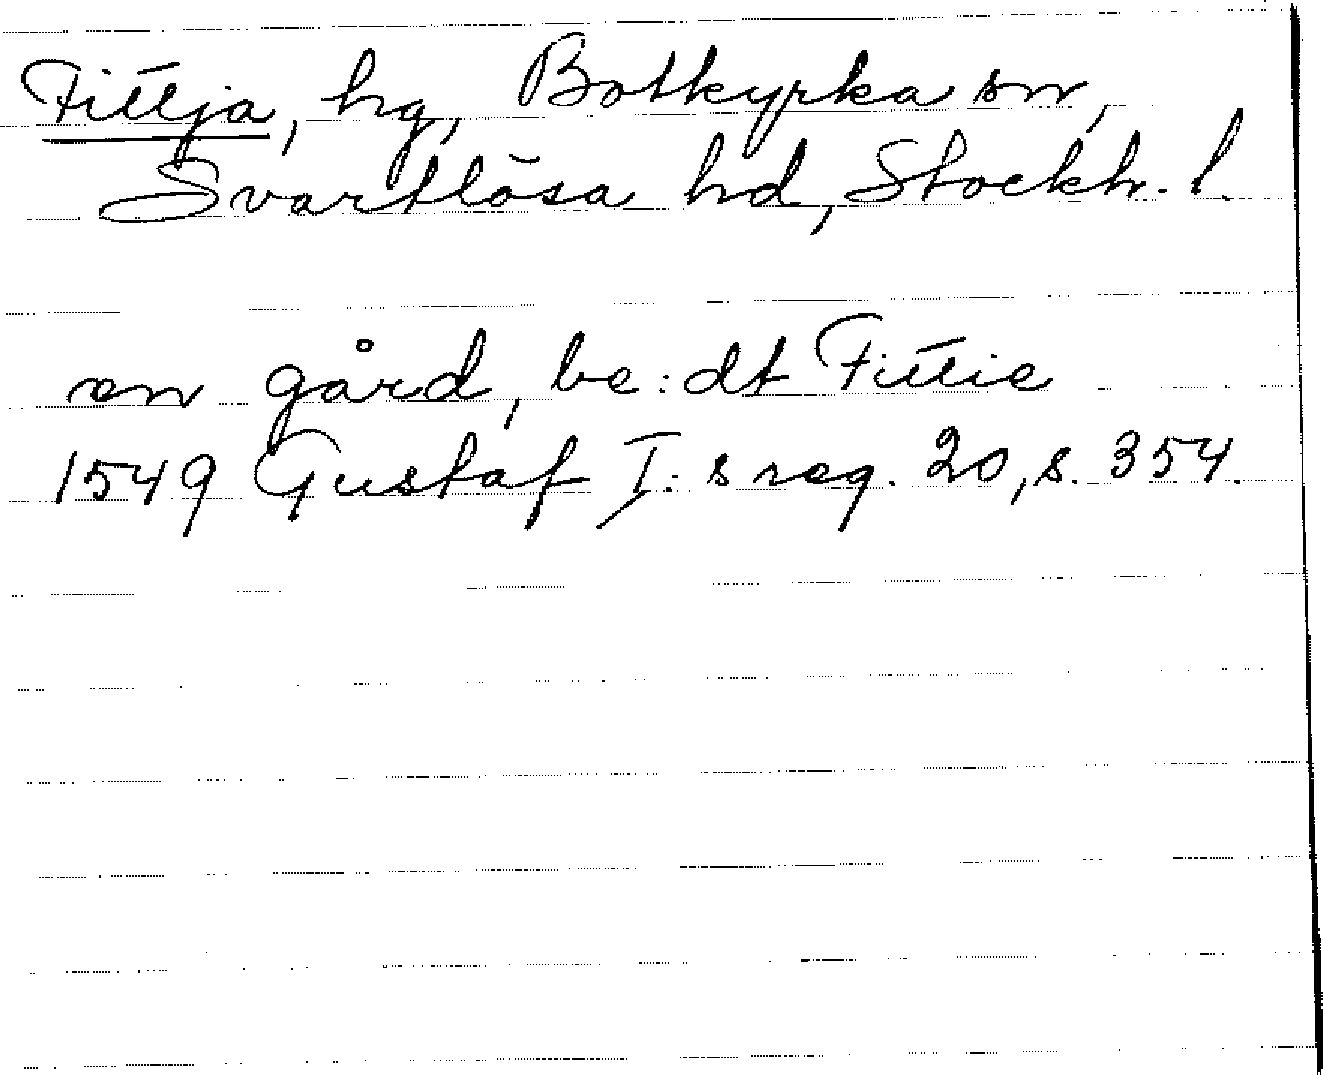 Fittja, hg, Botkyrka sn,
Svartlösa hd, Stockh. l.
en gård, be:dt Fittie
1549 Gustaf I:s reg. 20, s. 354.